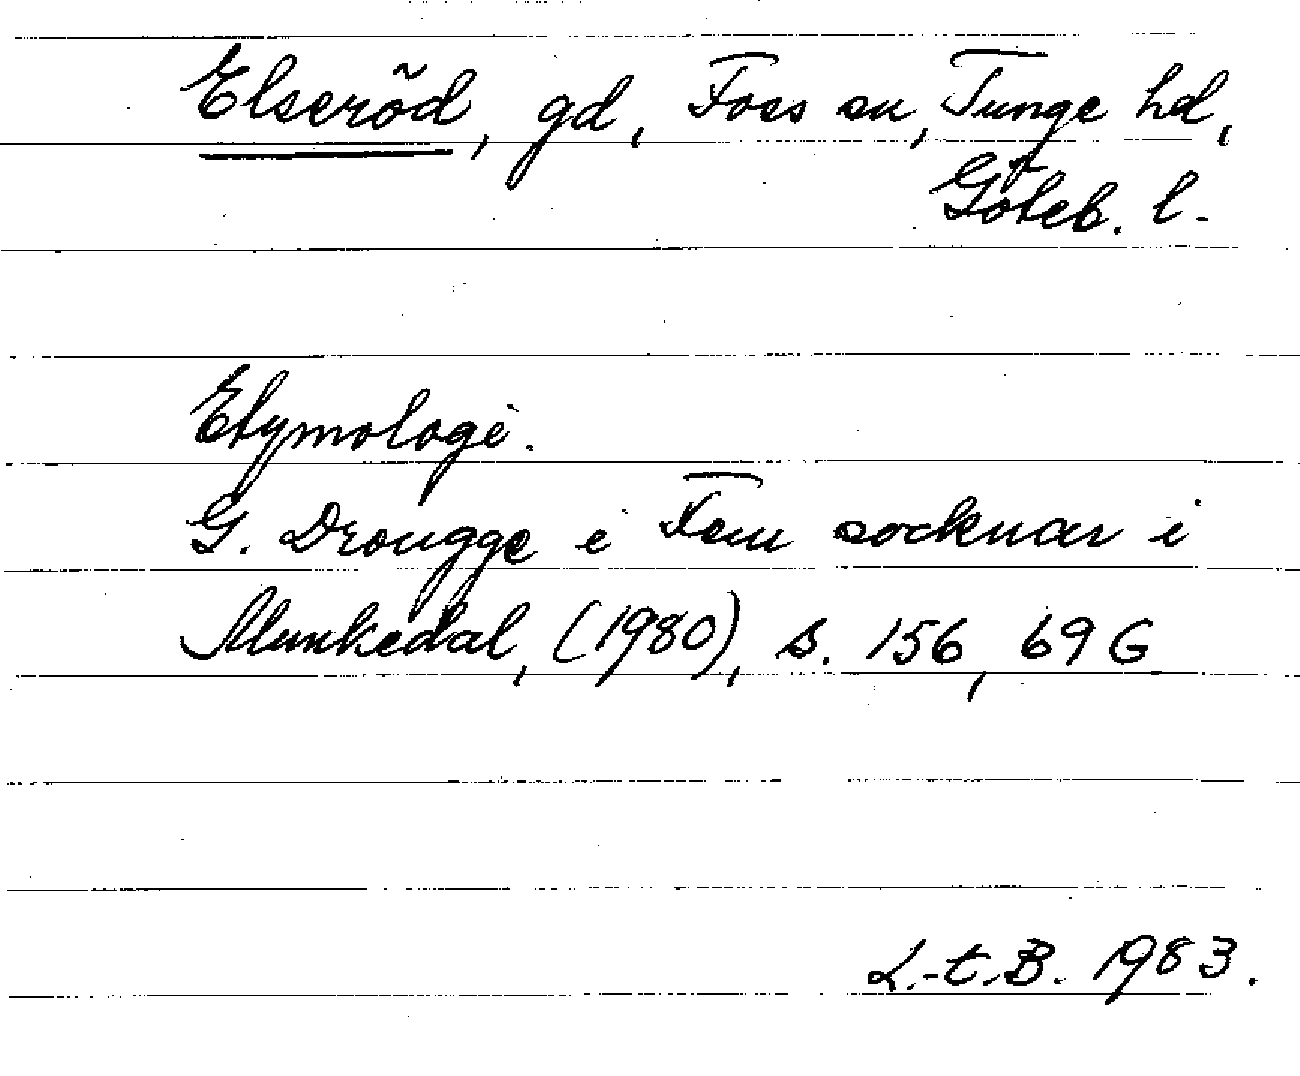 Elseröd, gd, Foss sn, Tunge hd,
Göteb. l.
Etymologi.
G. Drougge i Fem socknar i
Munkedal, (1980), s. 156, 69 G
L.-t.B. 1983.